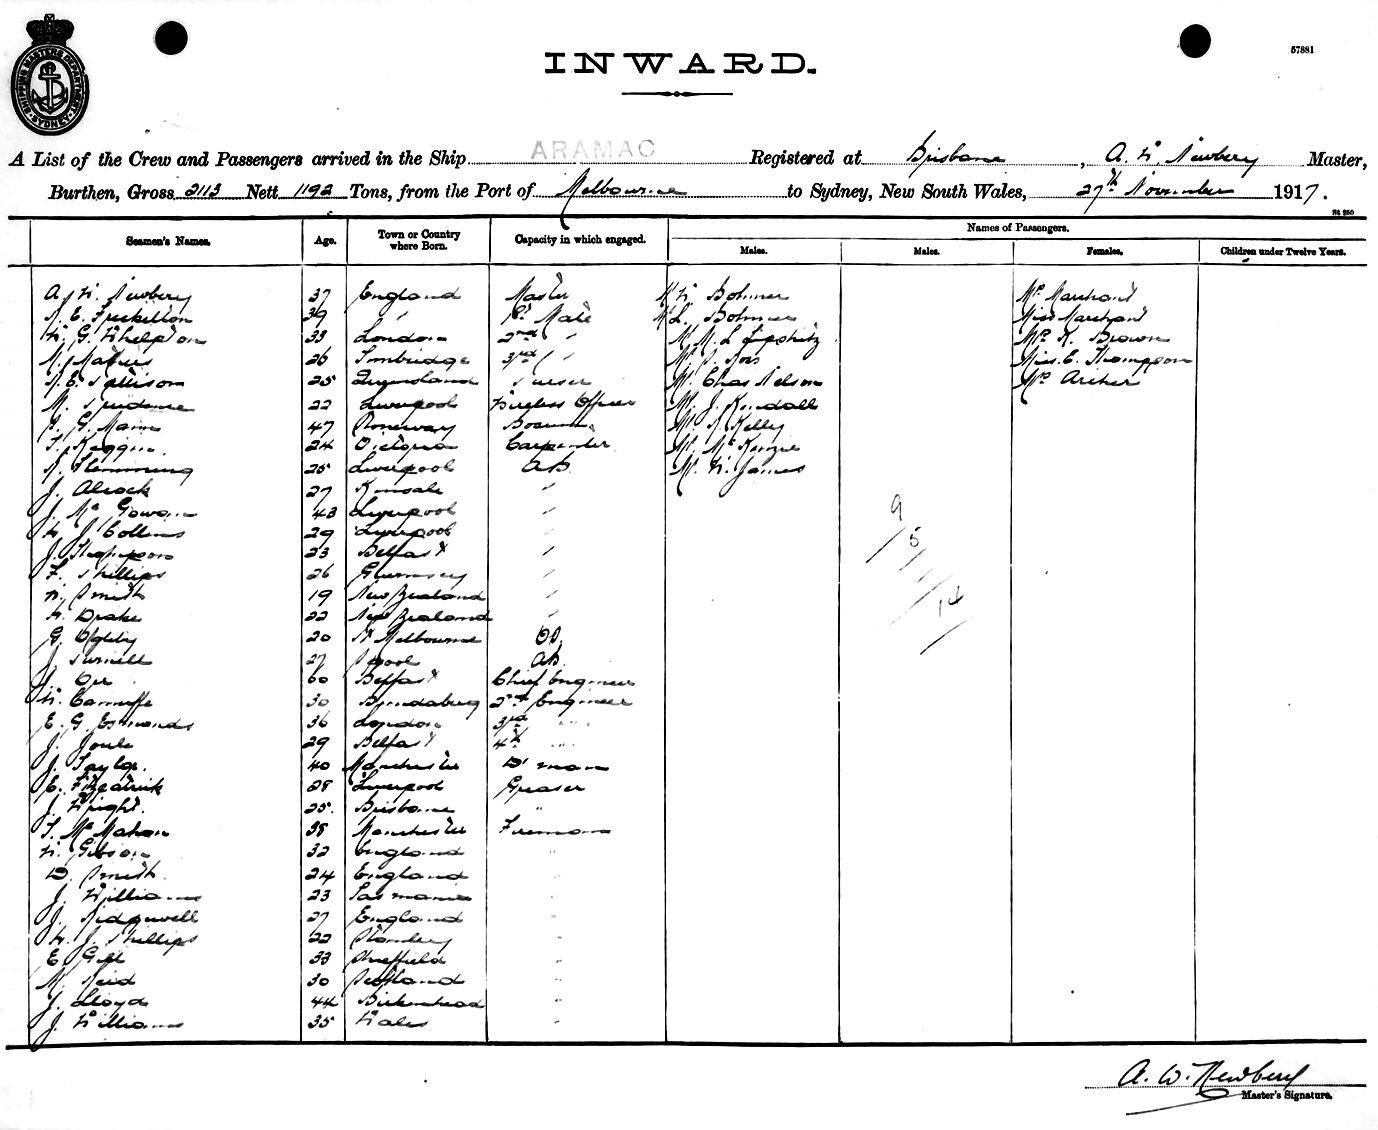 SHIPPING MASTERS DEPARTMENT SYDNEY
57881
INWARD.
A List of the Crew and Passengers arrived in the Ship ARAMAC Registered at Brisbane, A. W. Newbery Master,
Burthen, Gross 2113 Nett 1192 Tons, from the Port of Melbourne to Sydney, New South Wales, 27th November 1917.
St 250
Seamen's Names. Age. Town or Country where Born. Capacity in which engaged. Names of Passengers.
Males. Males. Females. Children under Twelve Years.
A. W. Newbery 37 England Master W. Bohmer Mrs. Marchant
39 " 1st Mate L. Bohmer Miss Marchant
W. G. Whelpton 33 London 2nd " M. L. Lipshitz Mrs. R. Brown
26 3rd " Miss. E. Thompson
25 Queensland Purser Mr. Chas Nelson Mrs Archer
M. Prudence 22 Liverpool Wireless Officer Mr. J. Kendall
G. Mann 47 Bosun Mr. R. Kelly
24 Victoria Carpenter Mr. McKenzie
Flemming 25 Liverpool AB Mr. W. James
J. Alcock 27 Kinsale "
J. McGowan 43 Liverpool "
J. Collins 29 Liverpool "
J. Thompson 23 Belfast "
F. Phillips 26 Guernsey "
W. Smith 19 New Zealand "
H. Drake 22 New Zealand "
G. Ogilby 20 Pt Melbourne OS
J. 27 AB
J. Orr 60 Belfast Chief Engineer
W. 30 Bundaberg 2nd Engineer
E. G. Esmonds 36 London 3rd "
J. Joule 29 Belfast 4th "
J. Taylor 40 Manchester D'man
E. Fitzpatrick 28 Liverpool Greaser
J. Wright 25 Brisbane "
T. McMahon 38 Manchester Fireman
W. Gibson 32 England "
D. Smith 24 England "
J. Williams 23 Tasmania "
J. Ridgewell 27 England "
H. J. Phillips 22 Stanley "
E. Gill 33 Sheffield "
M. Reid 30 Scotland "
J. Lloyd 44 Birkenhead "
J. Williams 35 Wales "
9
5
14
A. W. Newbery
Master's Signature.